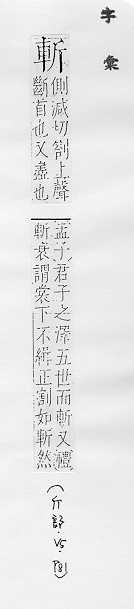 字彙
斬
側減切劄上聲
斷首也又盡也
孟子君子之澤五世而斬又禮
斬衰謂裳下不緝正割如斬然
(斤部.